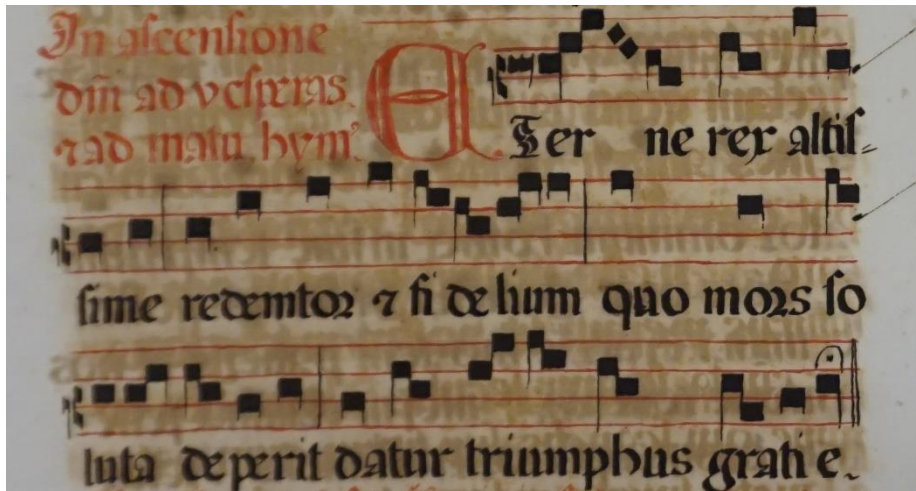 In ascensione
dm̄ ad vesperas
⁊ ad matu hymꝰ
ETer ne rex altis-
sime redemtoꝛ ⁊ fi de lium quo moꝛs so
luta deperit datur triumphus grati e.